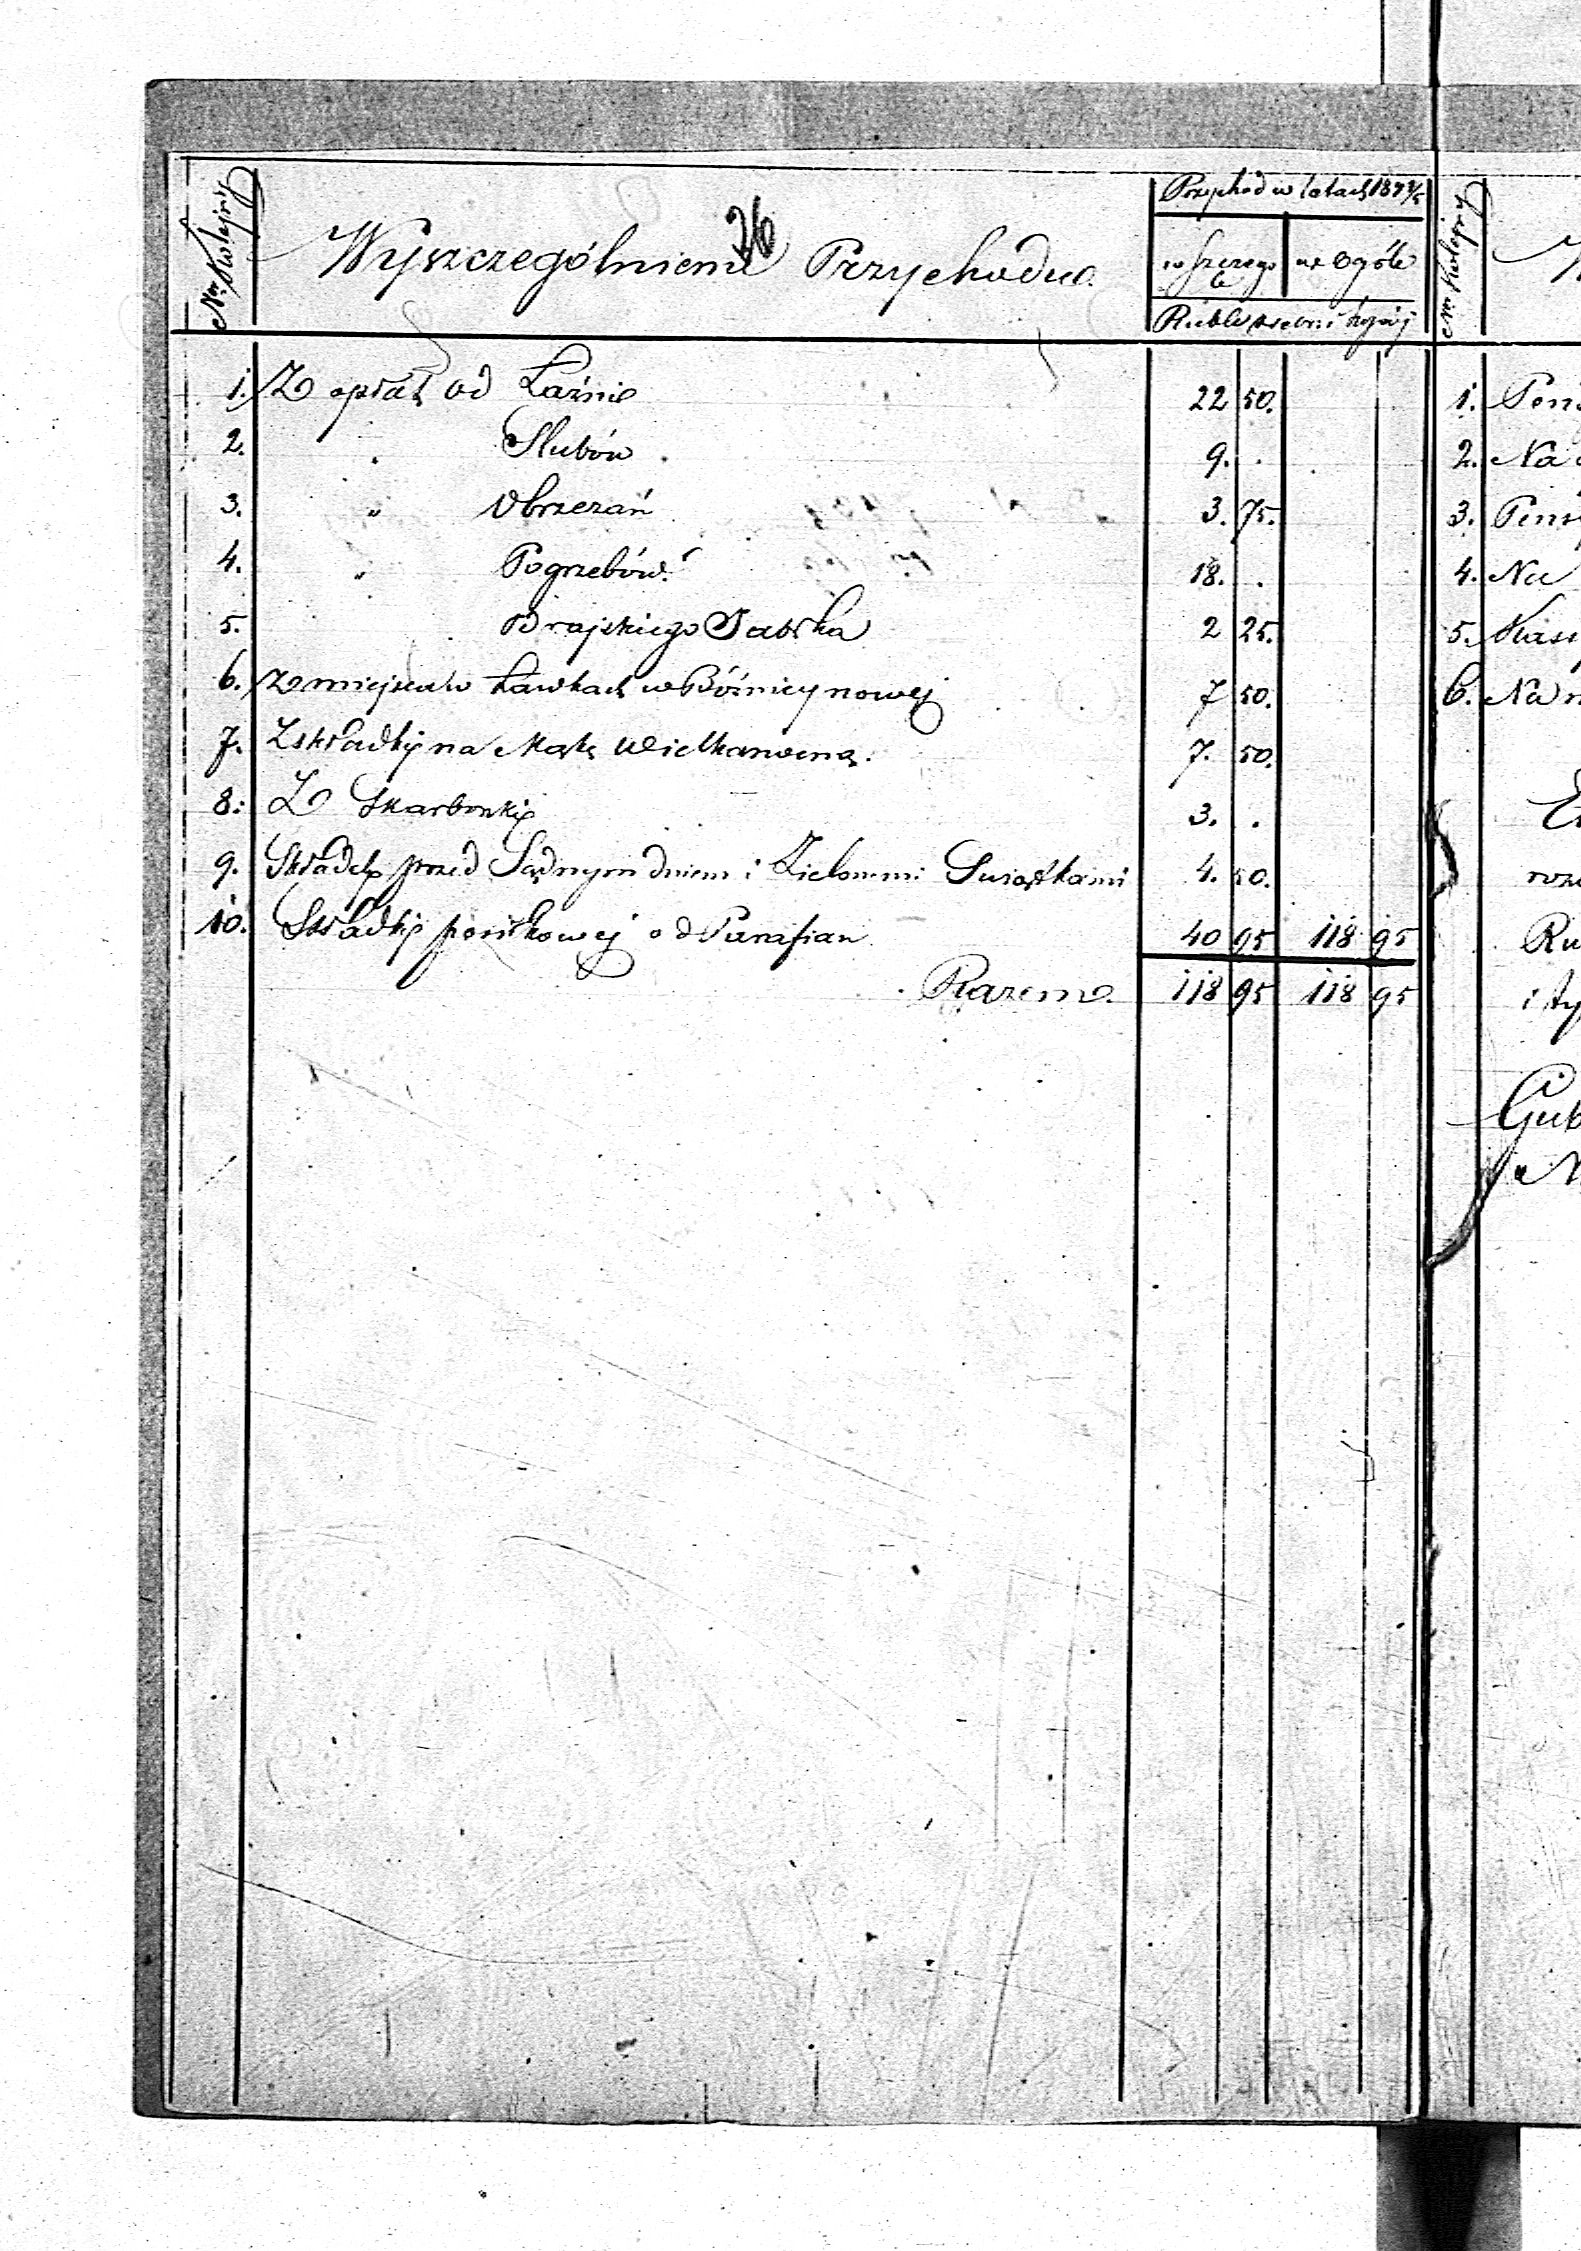 26
Nr Kolejny
Wyszczególnienie Przychodu
Przychód w latach 187
w szczególe
w ogóle
Ruble srebr. i kopiejki
1. Z opłat od Łaźni 22 50.
2. " Slubów 9. .
3. " Obrzezań 3. 75.
4. " Pogrzebów 18. .
5. Od rajskiego Jabłka 2 25.
6. Z miejsc w Ławkach w Bóżnicy nowej 7 50.
7. Z składki na Mąkę Wielkanocną. 7. 50.
8. Z Skarbonki 3. .
9. Składek przed Sądnym dniem i Zielonemi Swiątkami 4. 50.
10. Składki posiłkowej od Parafian 40 95 118 95
Razem 118 95 118 95
Nr Kolejny
1.
2. Na
3.
4. Na
5.
6. Na